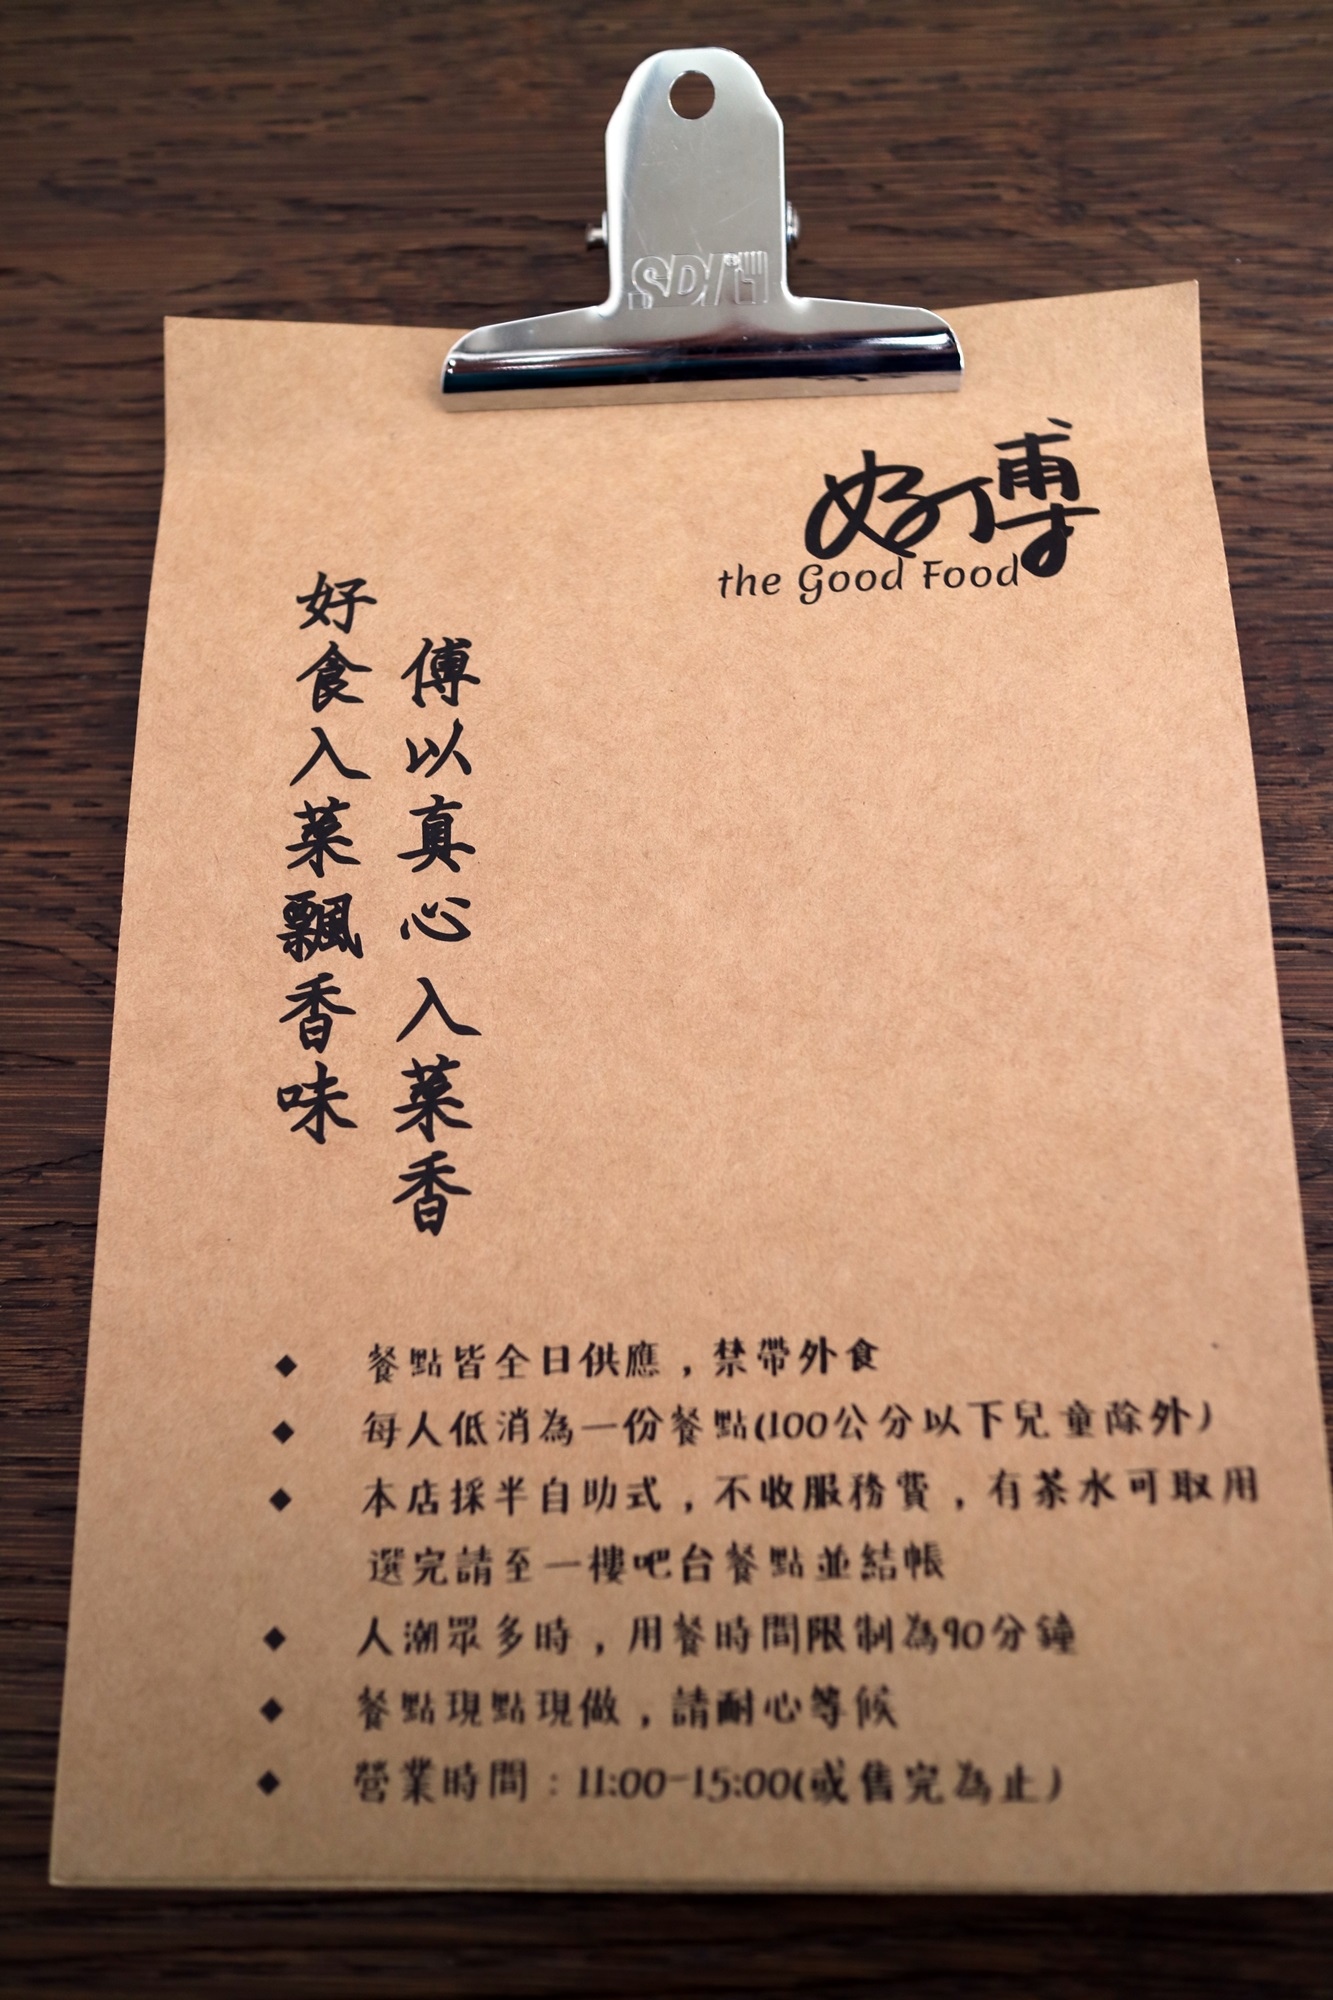 SDI
好傅
the Good Food
傅以真心入菜香
好食入菜飄香味
◆ 餐點皆全日供應，禁帶外食
◆ 每人低消為一份餐點(100公分以下兒童除外)
◆ 本店採半自助式，不收服務費，有茶水可取用
選完請至一樓吧台餐點並結帳
◆ 人潮眾多時，用餐時間限制為90分鐘
◆ 餐點現點現做，請耐心等候
◆ 營業時間：11:00-15:00(或售完為止)